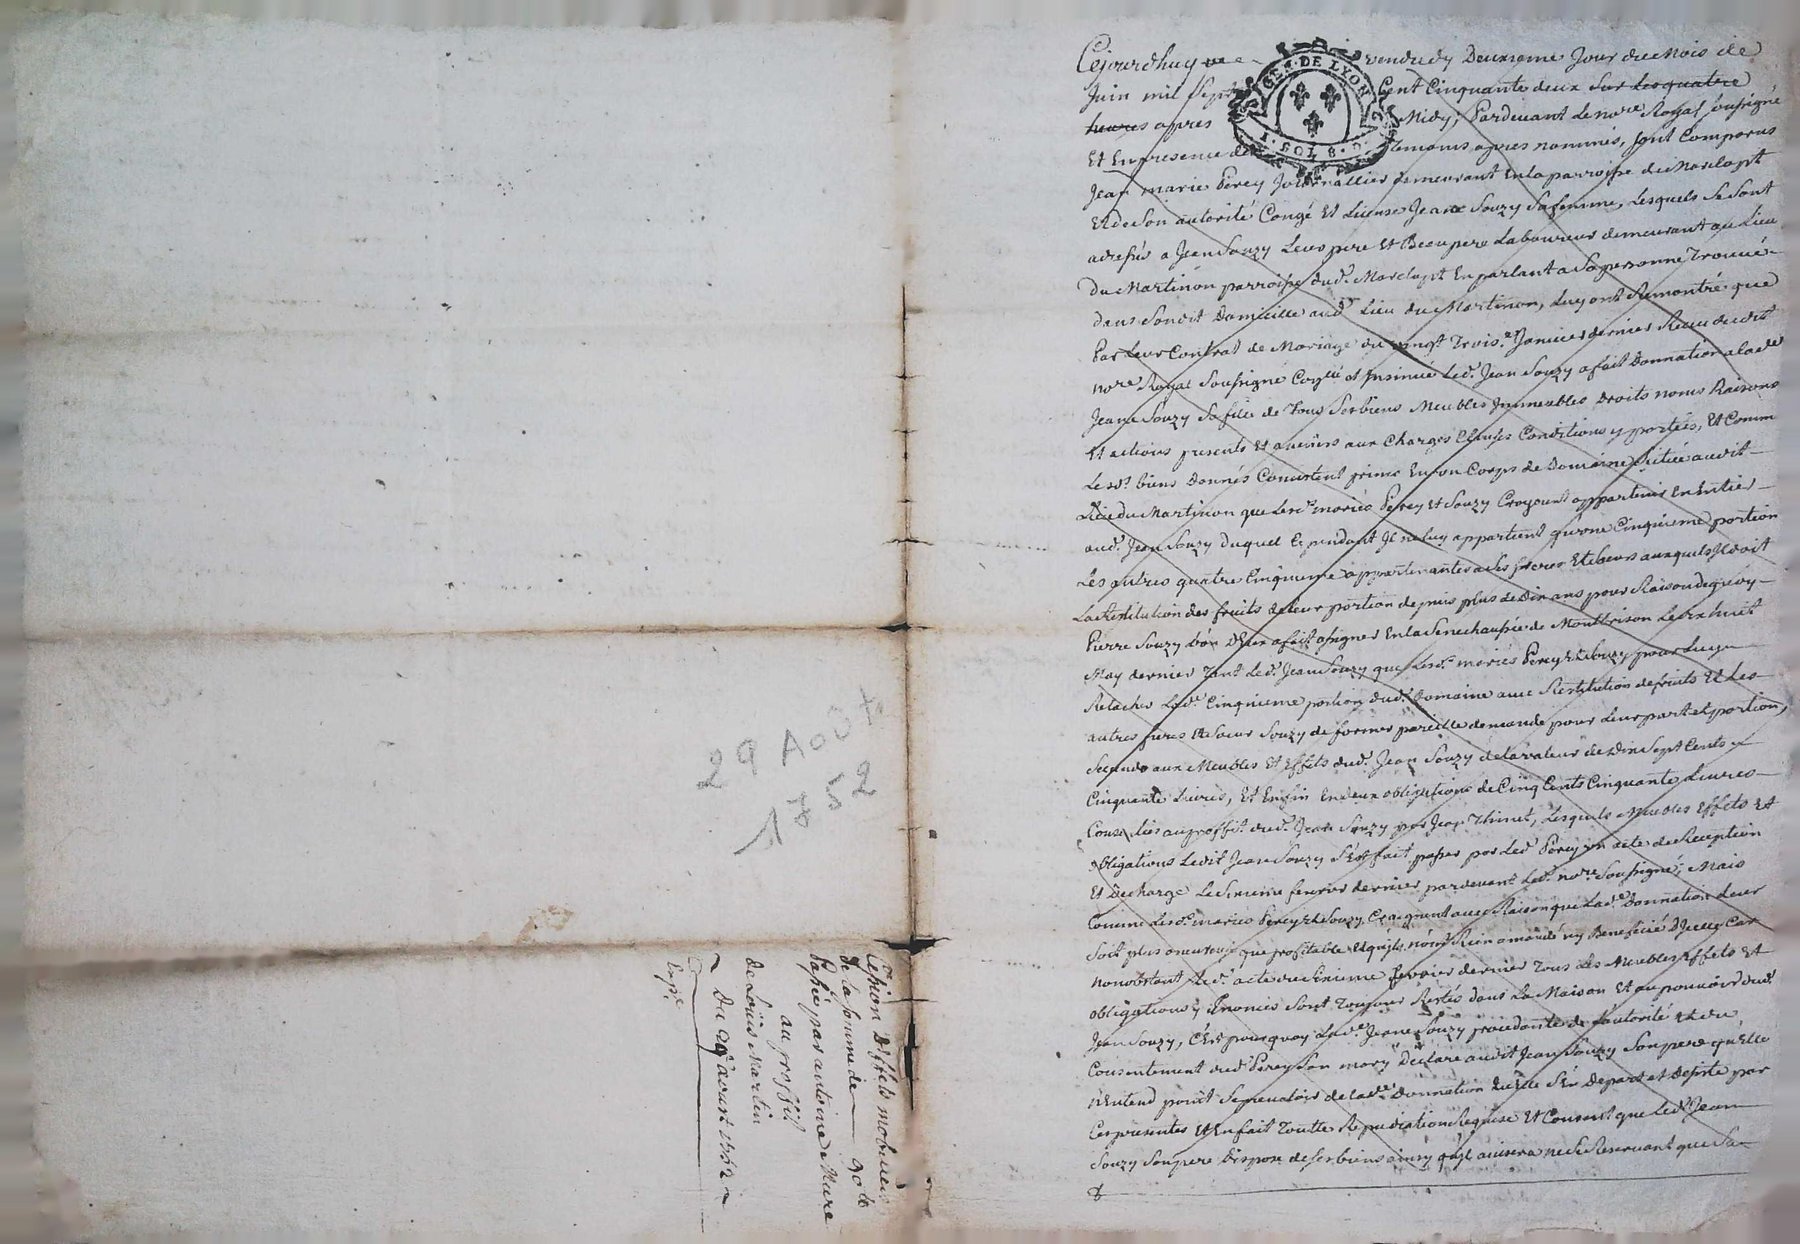 29 Août
1752
Cession d'effets mobiliers
de la somme de 90 lt
passée par antoine Mure
au proffit
de Loüis Martin
Du 29e aoust 1752
Exp.e
GEN. DE LYON
1. SOL 8. D.
Cejourdhuy vendredy Deuxieme Jour du Mois de
Juin mil Sept Cent Cinquante deux sur les quatre
heures apres Midy, Pardevant Le nore Royal soussigné
Et En presence des temoins apres nommés, sont Comparus
Jean marie Perey Journallier demeurant En la parroisse de Marclopt
Et de Son autorité Congé Et License Jeane Souzy sa femme, Lesquels Se Sont
adressés a Jean Souzy Leur pere Et Beaupere Laboureur demeurant au Lieu
Du Martinon parroisse dud. Marclopt En parlant a Sa personne Trouvé
dans Son dit Domicille aud. Lieu du Martinon, Luy ont Remontré que
Par Leur Contrat de Mariage du vingt Trois.e Janvier dernier Receu dudit
nore Royal Soussigné et Insinué Led. Jean Souzy a fait Donnation a lad.e
Jeane Souzy Sa fille de Tous Ses biens Meubles Immeubles Droits noms Raisons
Et actions presents Et avenirs aux Charges Clauses Conditions y portées, Et Comm
Lesd.s biens Donnés Consistent primo En un Corps de Domaine Scitué audit
Lieu du Martinon que Lesd. mariés Perey Et Souzy Croyoint appartenir En Entier
aud. Jean Souzy Duquel Cependant Il ne luy appartient qu'une Cinquieme portion
Les autres quatre Cinquieme appartenantes a Ses freres Et Soeurs auxquels Il doit
La Restitution des fruits de leur portion depuis plus de Dix ans pour Raison de quoy
Pierre Souzy L'un D'Eux a fait assigner En la Senechaussée de Montbrison Le dix huit
May dernier Tant Led. Jean Souzy que Lesd. mariés Perey Et Souzy pour Luy
Relacher Lad.e Cinquieme portion dud. Domaine avec Restitution de fruits Et Les
autres freres Et Soeur Souzy de former pareille demande pour Leur part et portion,
Secundo aux Meubles Et Effets dud. Jean Souzy de la valeur de Dix Sept Cents
Cinquante Livres, Et Enfin En deux obligations de Cinq Cents Cinquante Livres
au proffit dud. Jean Souzy par Jean Thinet, Lesquels Meubles Effets Et
obligations Ledit Jean Souzy S'Est fait passer par Led. Perey un acte de Reception
Et Decharge Le Sixieme fevrier dernier pardevant Led. nore Soussigné; Mais
Comme Lesd. mariés Perey Et Souzy Craignent avec Raison que Lad.e Donnation Leur
Soit plus onereuse que profitable Et qu'ils n'ont Rien amandé ny Beneficié D'Icelle Car
nonobstant Led. acte du Sixieme fevrier dernier Tous Les Meubles Effets Et
obligations y Enoncés Sont Toujours Restés dans La Maison Et au pouvoir dud.
Jean Souzy, C'Est pourquoy Lad.e Jeane Souzy procedante de L'autorité Et du
Consentement dud. Perey Son mary Declare audit Jean Souzy Son pere qu'Elle
n'Entend point Se prevaloir de lad.e Donnation qu'Elle S'En Depart et Desiste par
Ces presentes Et En fait Toutte Repudiation Requise Et Consent que Led. Jean
Souzy Son pere Dispose de Ses biens ainsy qu'Il avisera ne Se Reservant que Sa